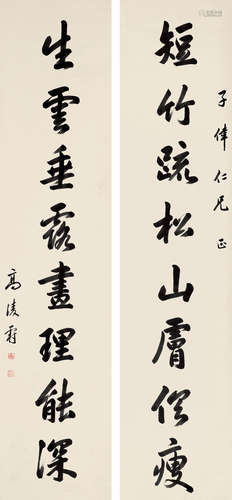 子偉仁兄正
短竹疏松山膚俱瘦
生雲垂露畫理能深
高凌霨